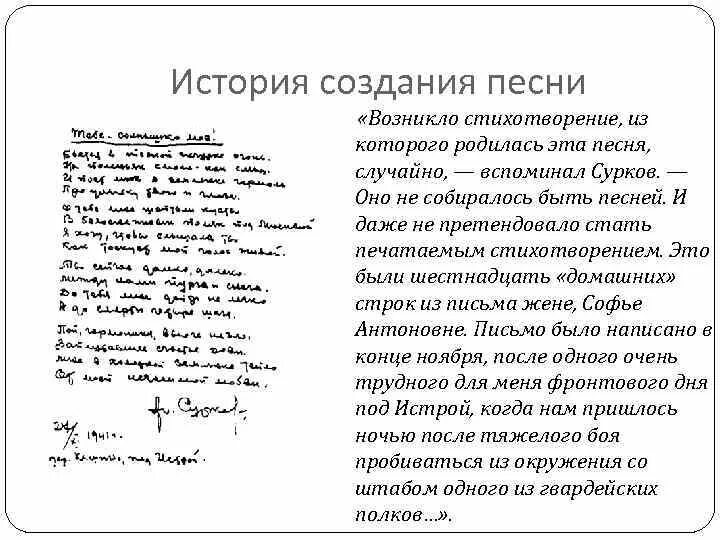 История создания песни
Тебе - солнышко мое!
Бьется в тесной печурке огонь.
На поленьях смола - как слеза.
И поет мне в землянке гармонь
Про улыбку твою и глаза.
О тебе мне шептали кусты
В белоснежных полях под Москвой
Я хочу, чтобы слышала ты
Как тоскует мой голос живой.
Ты сейчас далеко, далеко
между нами пурга и снега.
До тебя мне дойти не легко
А до смерти четыре шага.
Пой, гармоника, вьюге назло.
Заплутавшее счастье зови.
Мне в холодной землянке тепло
От моей негасимой любви.
Сурков
1941 г.
под Истрой.
«Возникло стихотворение, из
которого родилась эта песня,
случайно, — вспоминал Сурков. —
Оно не собиралось быть песней. И
даже не претендовало стать
печатаемым стихотворением. Это
были шестнадцать «домашних»
строк из письма жене, Софье
Антоновне. Письмо было написано в
конце ноября, после одного очень
трудного для меня фронтового дня
под Истрой, когда нам пришлось
ночью после тяжелого боя
пробиваться из окружения со
штабом одного из гвардейских
полков…».